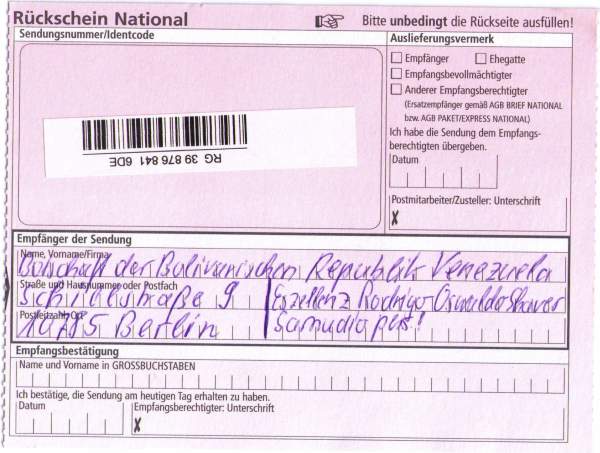 Rückschein National
Bitte unbedingt die Rückseite ausfüllen!
Sendungsnummer/Identcode
RG 39 876 841 6DE
Auslieferungsvermerk
Empfänger Ehegatte
Empfangsbevollmächtigter
Anderer Empfangsberechtigter
(Ersatzempfänger gemäß AGB BRIEF NATIONAL
bzw. AGB PAKET/EXPRESS NATIONAL)
Ich habe die Sendung dem Empfangs-
berechtigten übergeben.
Datum
Postmitarbeiter/Zusteller: Unterschrift
X
Empfänger der Sendung
Name, Vorname/Firma
Botschaft der Bolivarischen Republik Venezuela
Straße und Hausnummer oder Postfach
Schillstraße 9
Exzellenz Rodrigo Oswaldo Chaves
Postleitzahl, Ort
10785 Berlin
Samudio
Empfangsbestätigung
Name und Vorname in GROSSBUCHSTABEN
Ich bestätige, die Sendung am heutigen Tag erhalten zu haben.
Datum
Empfangsberechtigter: Unterschrift
X